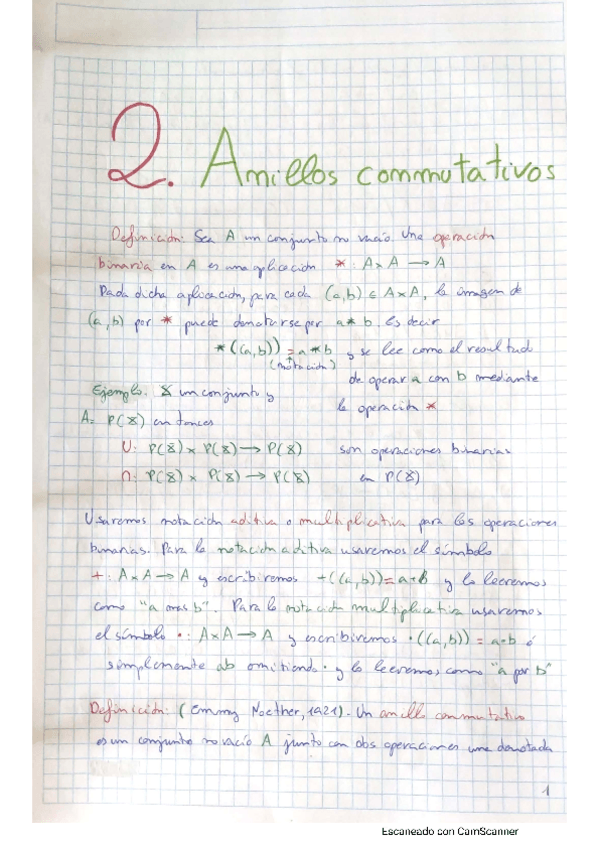 2. Anillos conmutativos
Definición: Sea A un conjunto no vacío. Una operación
binaria en A es una aplicación * : A × A → A
Dada dicha aplicación, para cada (a,b) ∈ A×A, la imagen de
(a,b) por * puede denotarse por a * b. Es decir
*((a,b)) = a * b y se lee como el resultado
(notación)
de operar a con b mediante
la operación *
Ejemplo: X un conjunto y
A = P(X) entonces
U: P(X) × P(X) → P(X) son operaciones binarias
∩: P(X) × P(X) → P(X) en P(X)
Usaremos notación aditiva o multiplicativa para las operaciones
binarias. Para la notación aditiva usaremos el símbolo
+ : A×A → A y escribiremos +((a,b)) = a+b y lo leeremos
como "a mas b". Para la notación multiplicativa usaremos
el símbolo · : A×A → A y escribiremos ·((a,b)) = a·b ó
simplemente ab omitiendo · y lo leeremos como "a por b"
Definición: (Emmy Noether, 1921). Un anillo conmutativo
es un conjunto no vacío A junto con dos operaciones una denotada
1
Escaneado con CamScanner